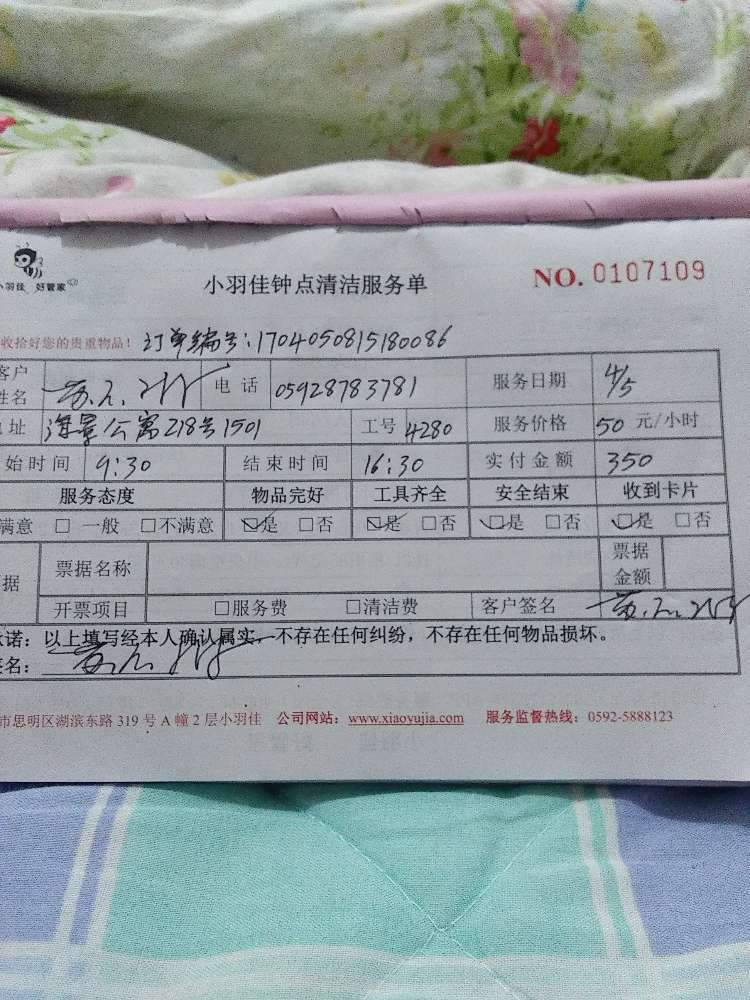 小羽佳 好管家
小羽佳钟点清洁服务单
NO. 0107109
收拾好您的贵重物品!
订单编号:1704050815180086
客户姓名 电话 05928783781 服务日期 4/5
址 海景公寓218号1501 工号 4280 服务价格 50 元/小时
始时间 9:30 结束时间 16:30 实付金额 350
服务态度 物品完好 工具齐全 安全结束 收到卡片
满意 □ 一般 □不满意 ☑是 □否 ☑是 □否 ☑是 □否 ☑是 □否
据 票据名称 票据金额
开票项目 □服务费 □清洁费 客户签名
诺:以上填写经本人确认属实,不存在任何纠纷,不存在任何物品损坏。
签名:
市思明区湖滨东路 319 号 A 幢 2 层小羽佳 公司网站:www.xiaoyujia.com 服务监督热线:0592-5888123